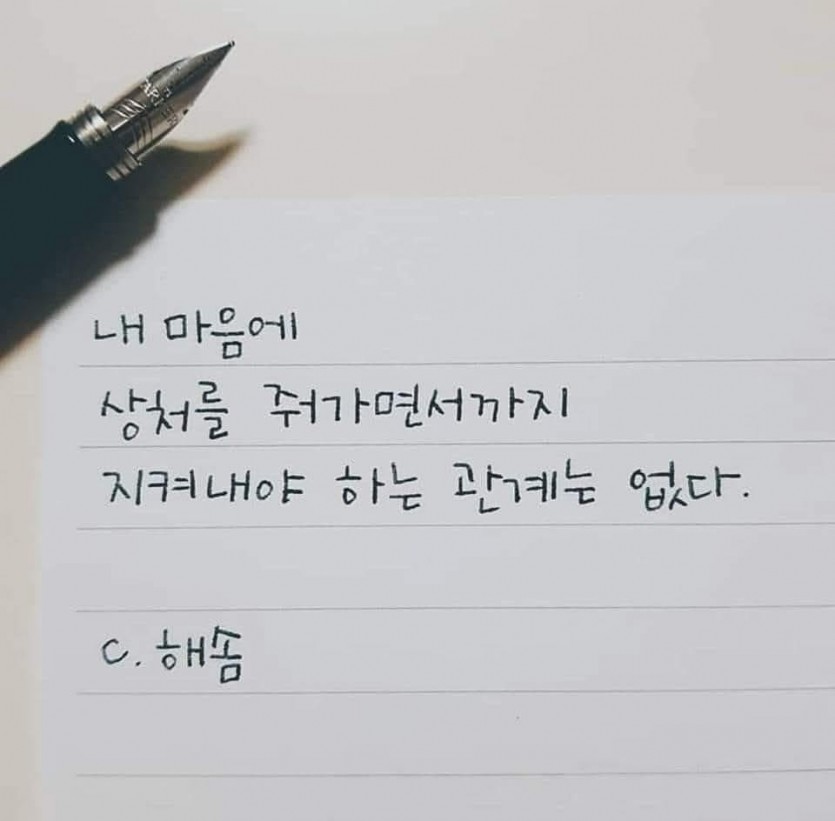 내 마음에
상처를 줘가면서까지
지켜내야 하는 관계는 없다.
c. 해솜